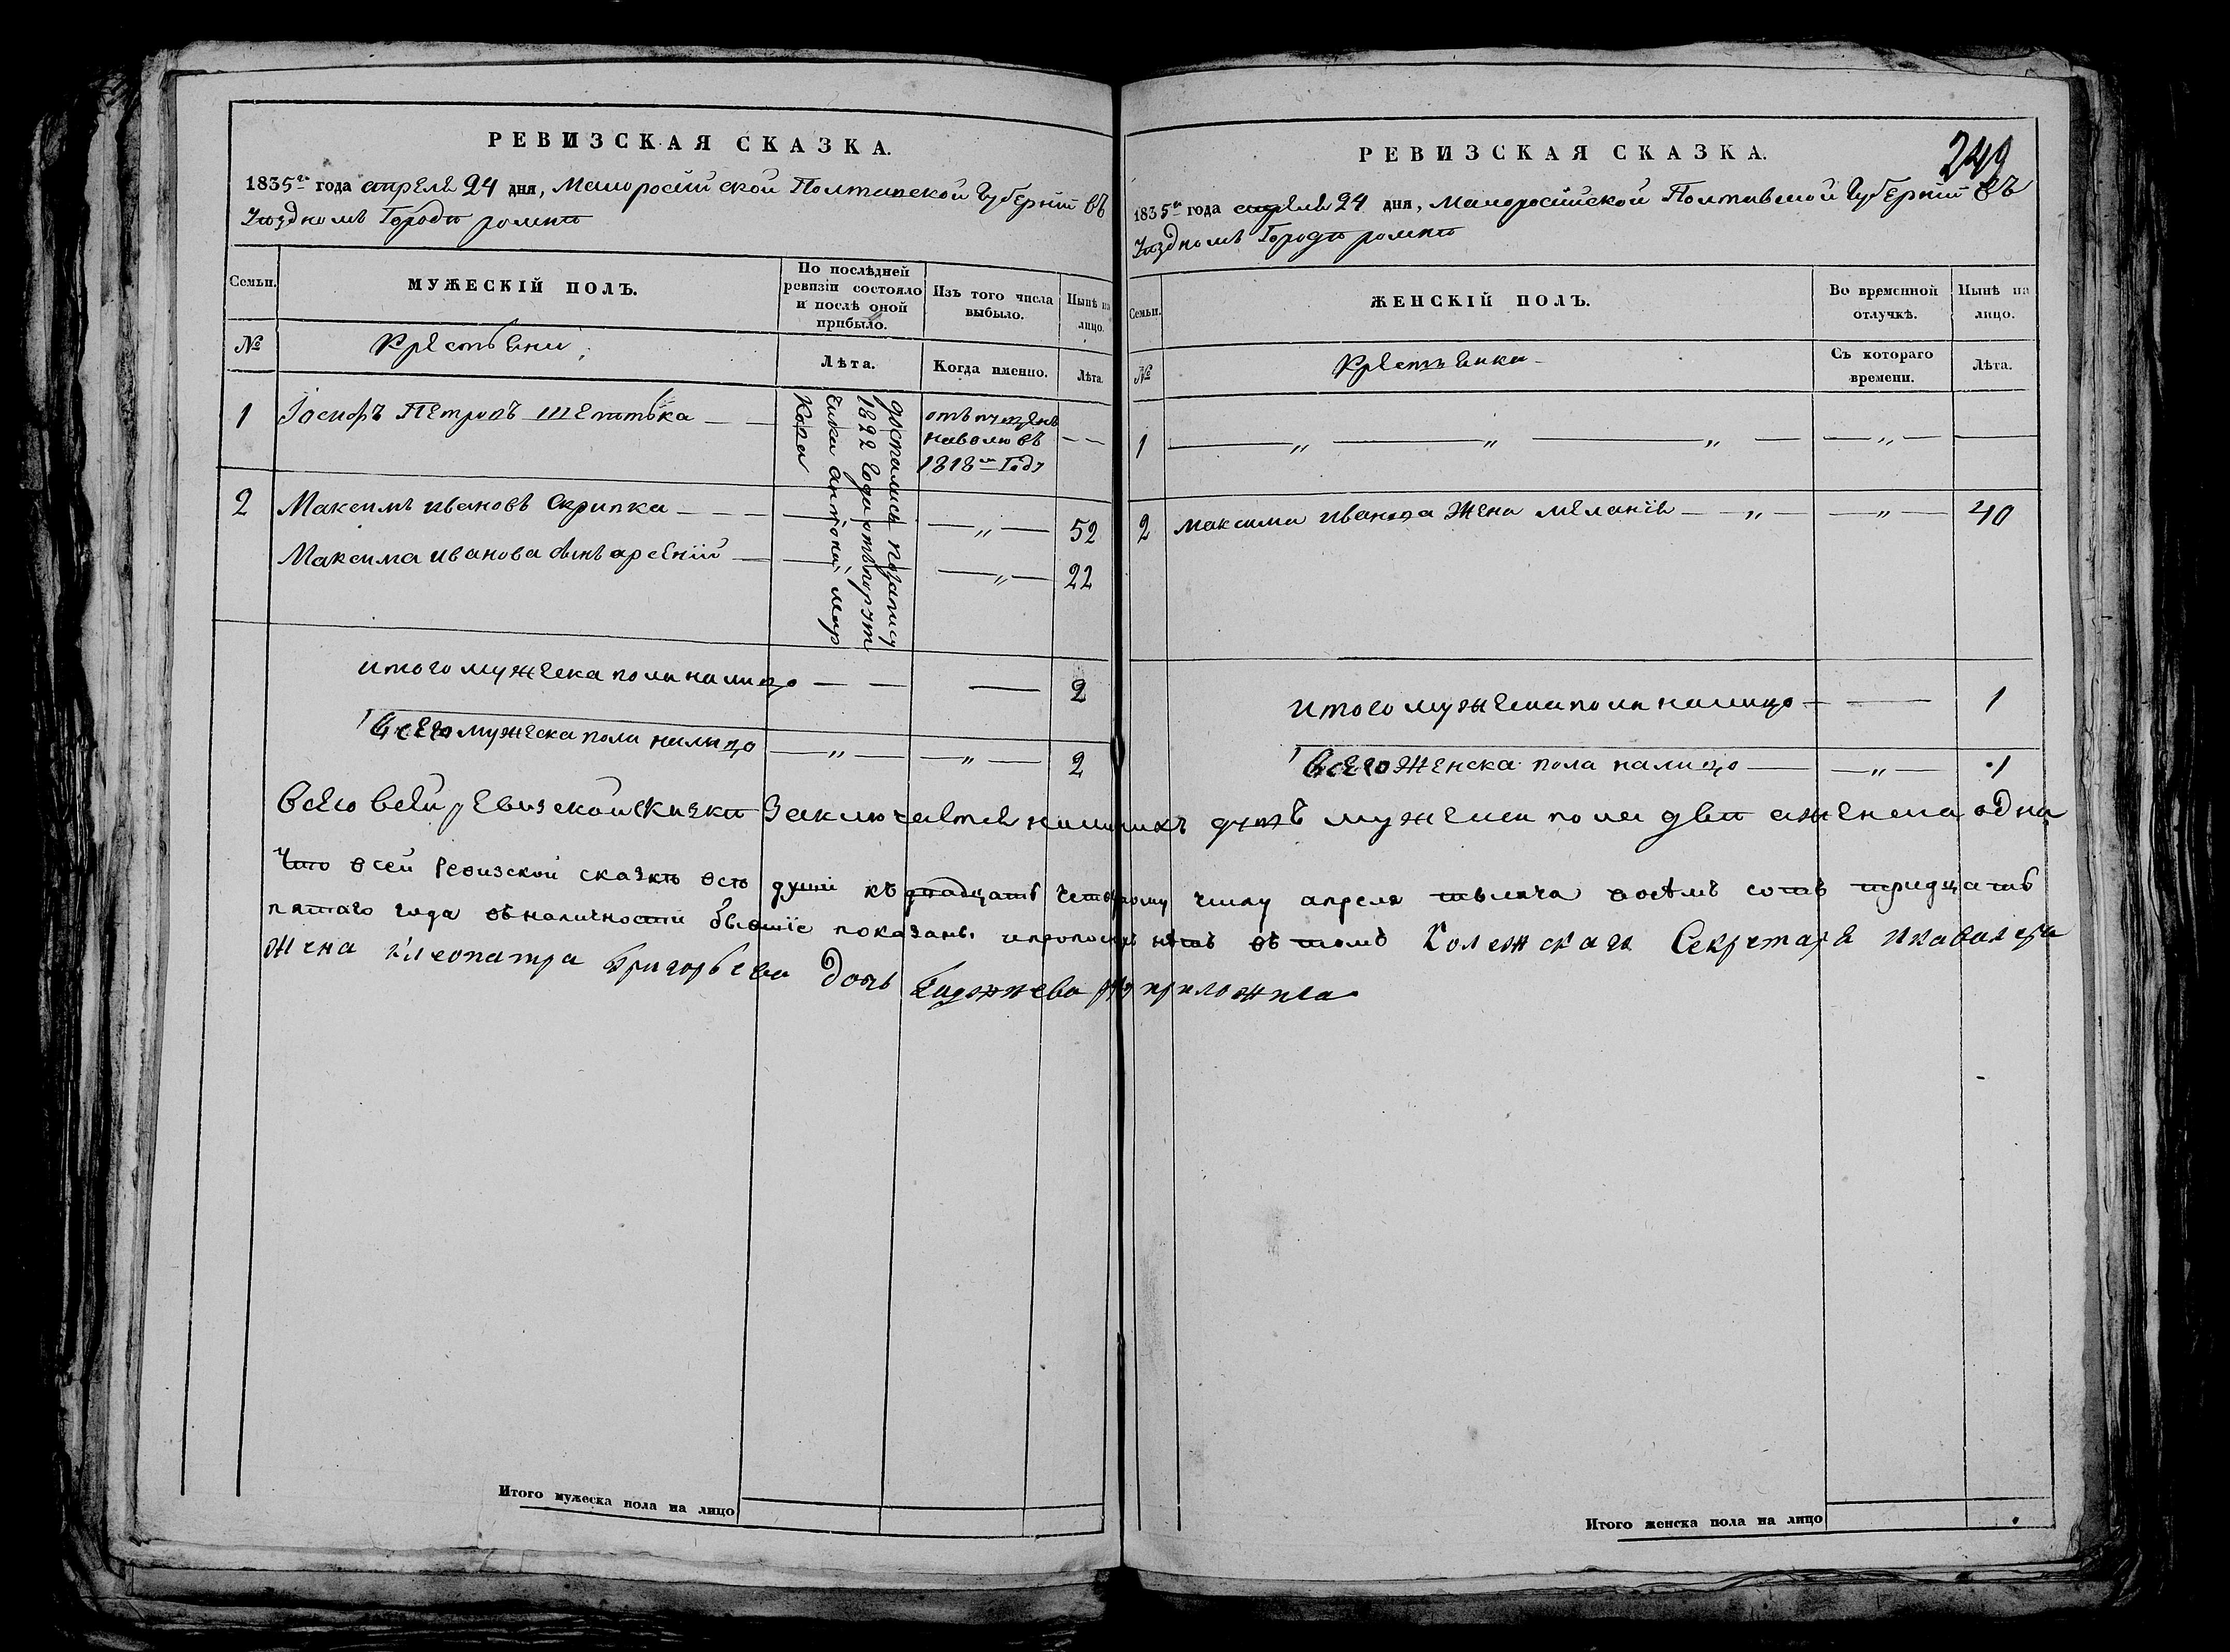 РЕВИЗСКАЯ СКАЗКА.
1835го года апреля 24 дня, Малоросiиской Полтавской Губернiи въ
Уѣздномъ Городѣ ромнѣ
Семьи.
МУЖЕСКІЙ ПОЛЪ.
По послѣдней ревизіи состояло и послѣ оной прибыло.
Изъ того числа выбыло.
Нынѣ на лицо.
№
Крестьяни
Лѣта.
Когда именно.
Лѣта.
1 Iосифъ Петровъ Шепатька
отъпущенъ
наволю въ
1818м Году
достались позапису
1822 Года отъ
Кора
2 Максимъ ивановъ Скрипка — „ — 52
Максима иванова сынъ арсенiй — „ — 22
итого мужеска пола налицо — 2
Всего мужеска пола налицо — „ — „ — 2
РЕВИЗСКАЯ СКАЗКА.
249
1835го года апреля 24 дня, Малоросiйской Полтавской Губернiи въ
Уѣздномъ Городѣ ромнѣ
Семьи.
ЖЕНСКІЙ ПОЛЪ.
Во временной отлучкѣ.
Нынѣ на лицо.
№
Крестьянки
Съ котораго времени.
Лѣта.
1 — „ — „ — „ — „ —
2 Максима иванова жена меланiя — „ — „ — 40
итого мужеска пола налицо — 1
Всего Женска пола налицо — „ — 1
Всего всей ревизской скизки Заключается наличихъ душъ мужеска пола две аженска одна
Что всей Ревизской сказкѣ всѣ душѣ къ двадцать четвертому числу апреля тысяча восемъ сотъ тридцать
пятаго года вналичности бывшiе показаны ипрописныхъ нѣтъ въ томъ Колежскаго Секретаря икавалера
Жена Клеопатра Григорьева Дочь руку приложила
Итого мужеска пола на лицо
Итого женска пола на лицо